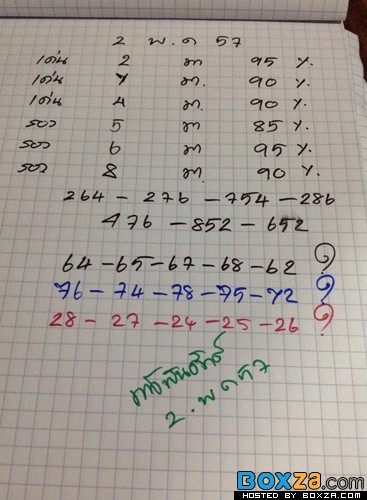 2 พ.ค 57
เด่น 2 มา 95 %.
เด่น 7 มา. 90 %.
เด่น 4 มา 90 %.
รอง 5 มา 85 %.
รอง 6 มา 95 %.
รอง 8 มา. 90 %.
264 - 276 - 754 - 286
476 - 852 - 652
64 - 65 - 67 - 68 - 62
76 - 74 - 78 - 75 - 72
28 - 27 - 24 - 25 - 26
2. พ.ค 57
BOXZA.com
HOSTED BY BOXZA.COM